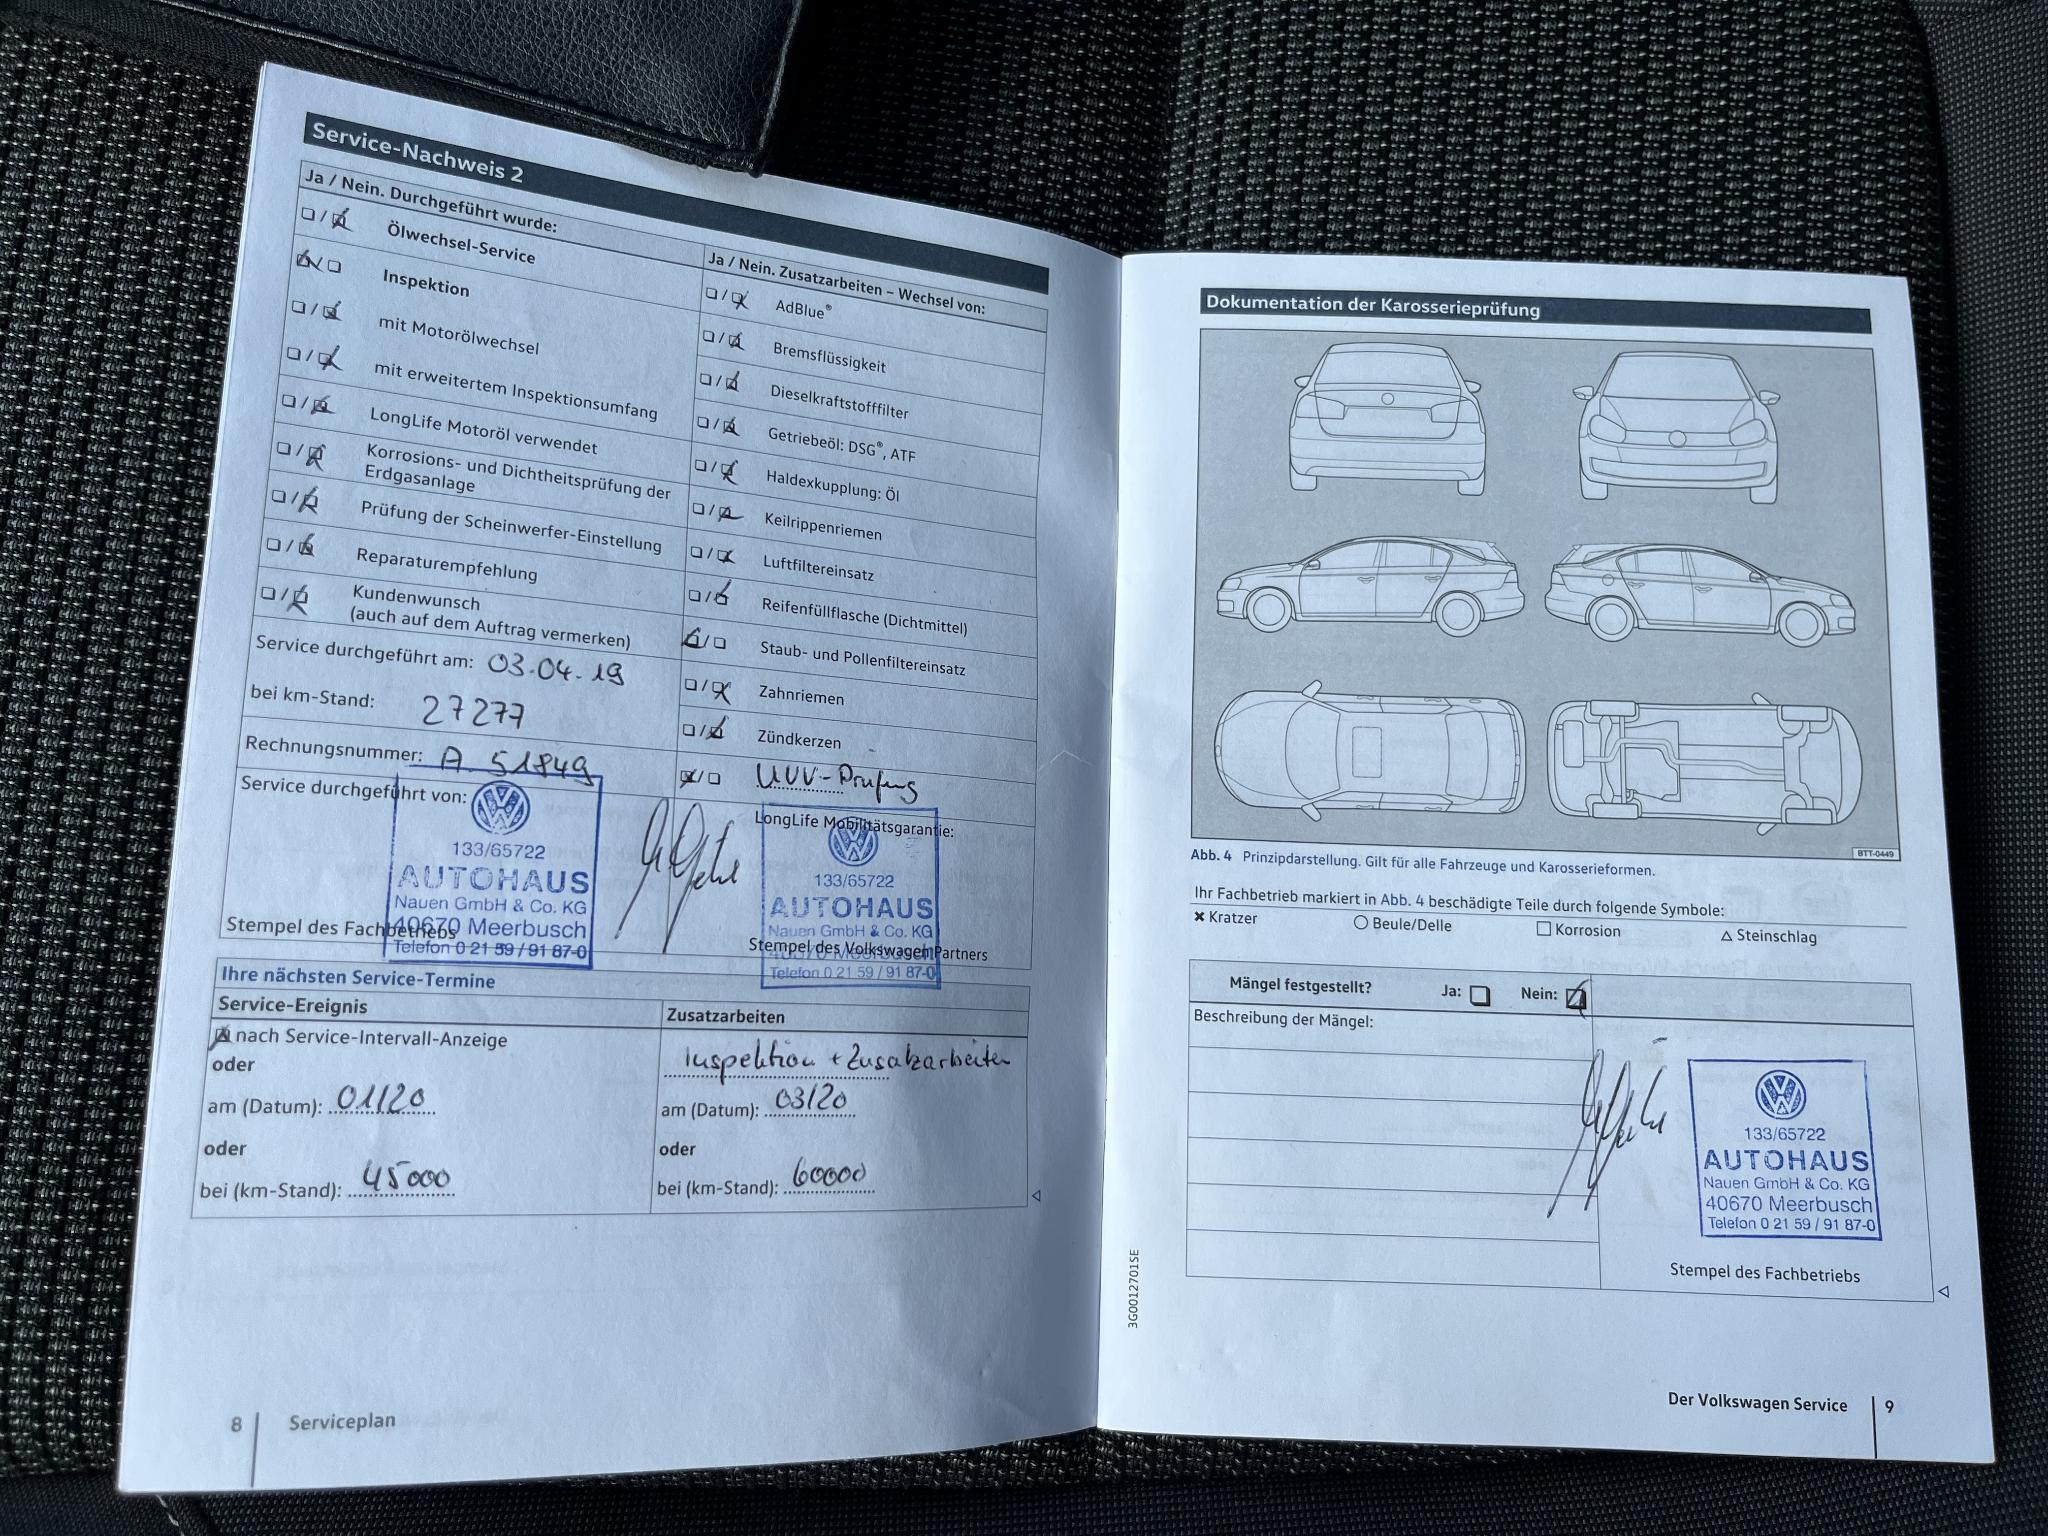 Service-Nachweis 2
Ja / Nein. Durchgeführt wurde:
Ölwechsel-Service
Inspektion
mit Motorölwechsel
mit erweitertem Inspektionsumfang
LongLife Motoröl verwendet
Korrosions- und Dichtheitsprüfung der
Erdgasanlage
Prüfung der Scheinwerfer-Einstellung
Reparaturempfehlung
Kundenwunsch
(auch auf dem Auftrag vermerken)
Service durchgeführt am: 03.04.19
bei km-Stand: 27277
Rechnungsnummer: A 51849
Service durchgeführt von:
133/65722
AUTOHAUS
Nauen GmbH & Co. KG
40670 Meerbusch
Telefon 0 21 59 / 91 87-0
Stempel des Fachbetriebs
Ja / Nein. Zusatzarbeiten – Wechsel von:
AdBlue®
Bremsflüssigkeit
Dieselkraftstofffilter
Getriebeöl: DSG®, ATF
Haldexkupplung: Öl
Keilrippenriemen
Luftfiltereinsatz
Reifenfüllflasche (Dichtmittel)
Staub- und Pollenfiltereinsatz
Zahnriemen
Zündkerzen
UVV-Prüfung
LongLife Mobilitätsgarantie:
133/65722
AUTOHAUS
Nauen GmbH & Co. KG
40670 Meerbusch
Telefon 0 21 59 / 91 87-0
Stempel des Volkswagen Partners
Ihre nächsten Service-Termine
Service-Ereignis
nach Service-Intervall-Anzeige
oder
am (Datum): 01/20
oder
bei (km-Stand): 45000
Zusatzarbeiten
Inspektion + Zusatzarbeiten
am (Datum): 03/20
oder
bei (km-Stand): 60000
8 Serviceplan
Dokumentation der Karosserieprüfung
BTT-0449
Abb. 4 Prinzipdarstellung. Gilt für alle Fahrzeuge und Karosserieformen.
Ihr Fachbetrieb markiert in Abb. 4 beschädigte Teile durch folgende Symbole:
Kratzer Beule/Delle Korrosion Steinschlag
Mängel festgestellt? Ja: Nein:
Beschreibung der Mängel:
133/65722
AUTOHAUS
Nauen GmbH & Co. KG
40670 Meerbusch
Telefon 0 21 59 / 91 87-0
Stempel des Fachbetriebs
3G0012701SE
Der Volkswagen Service 9